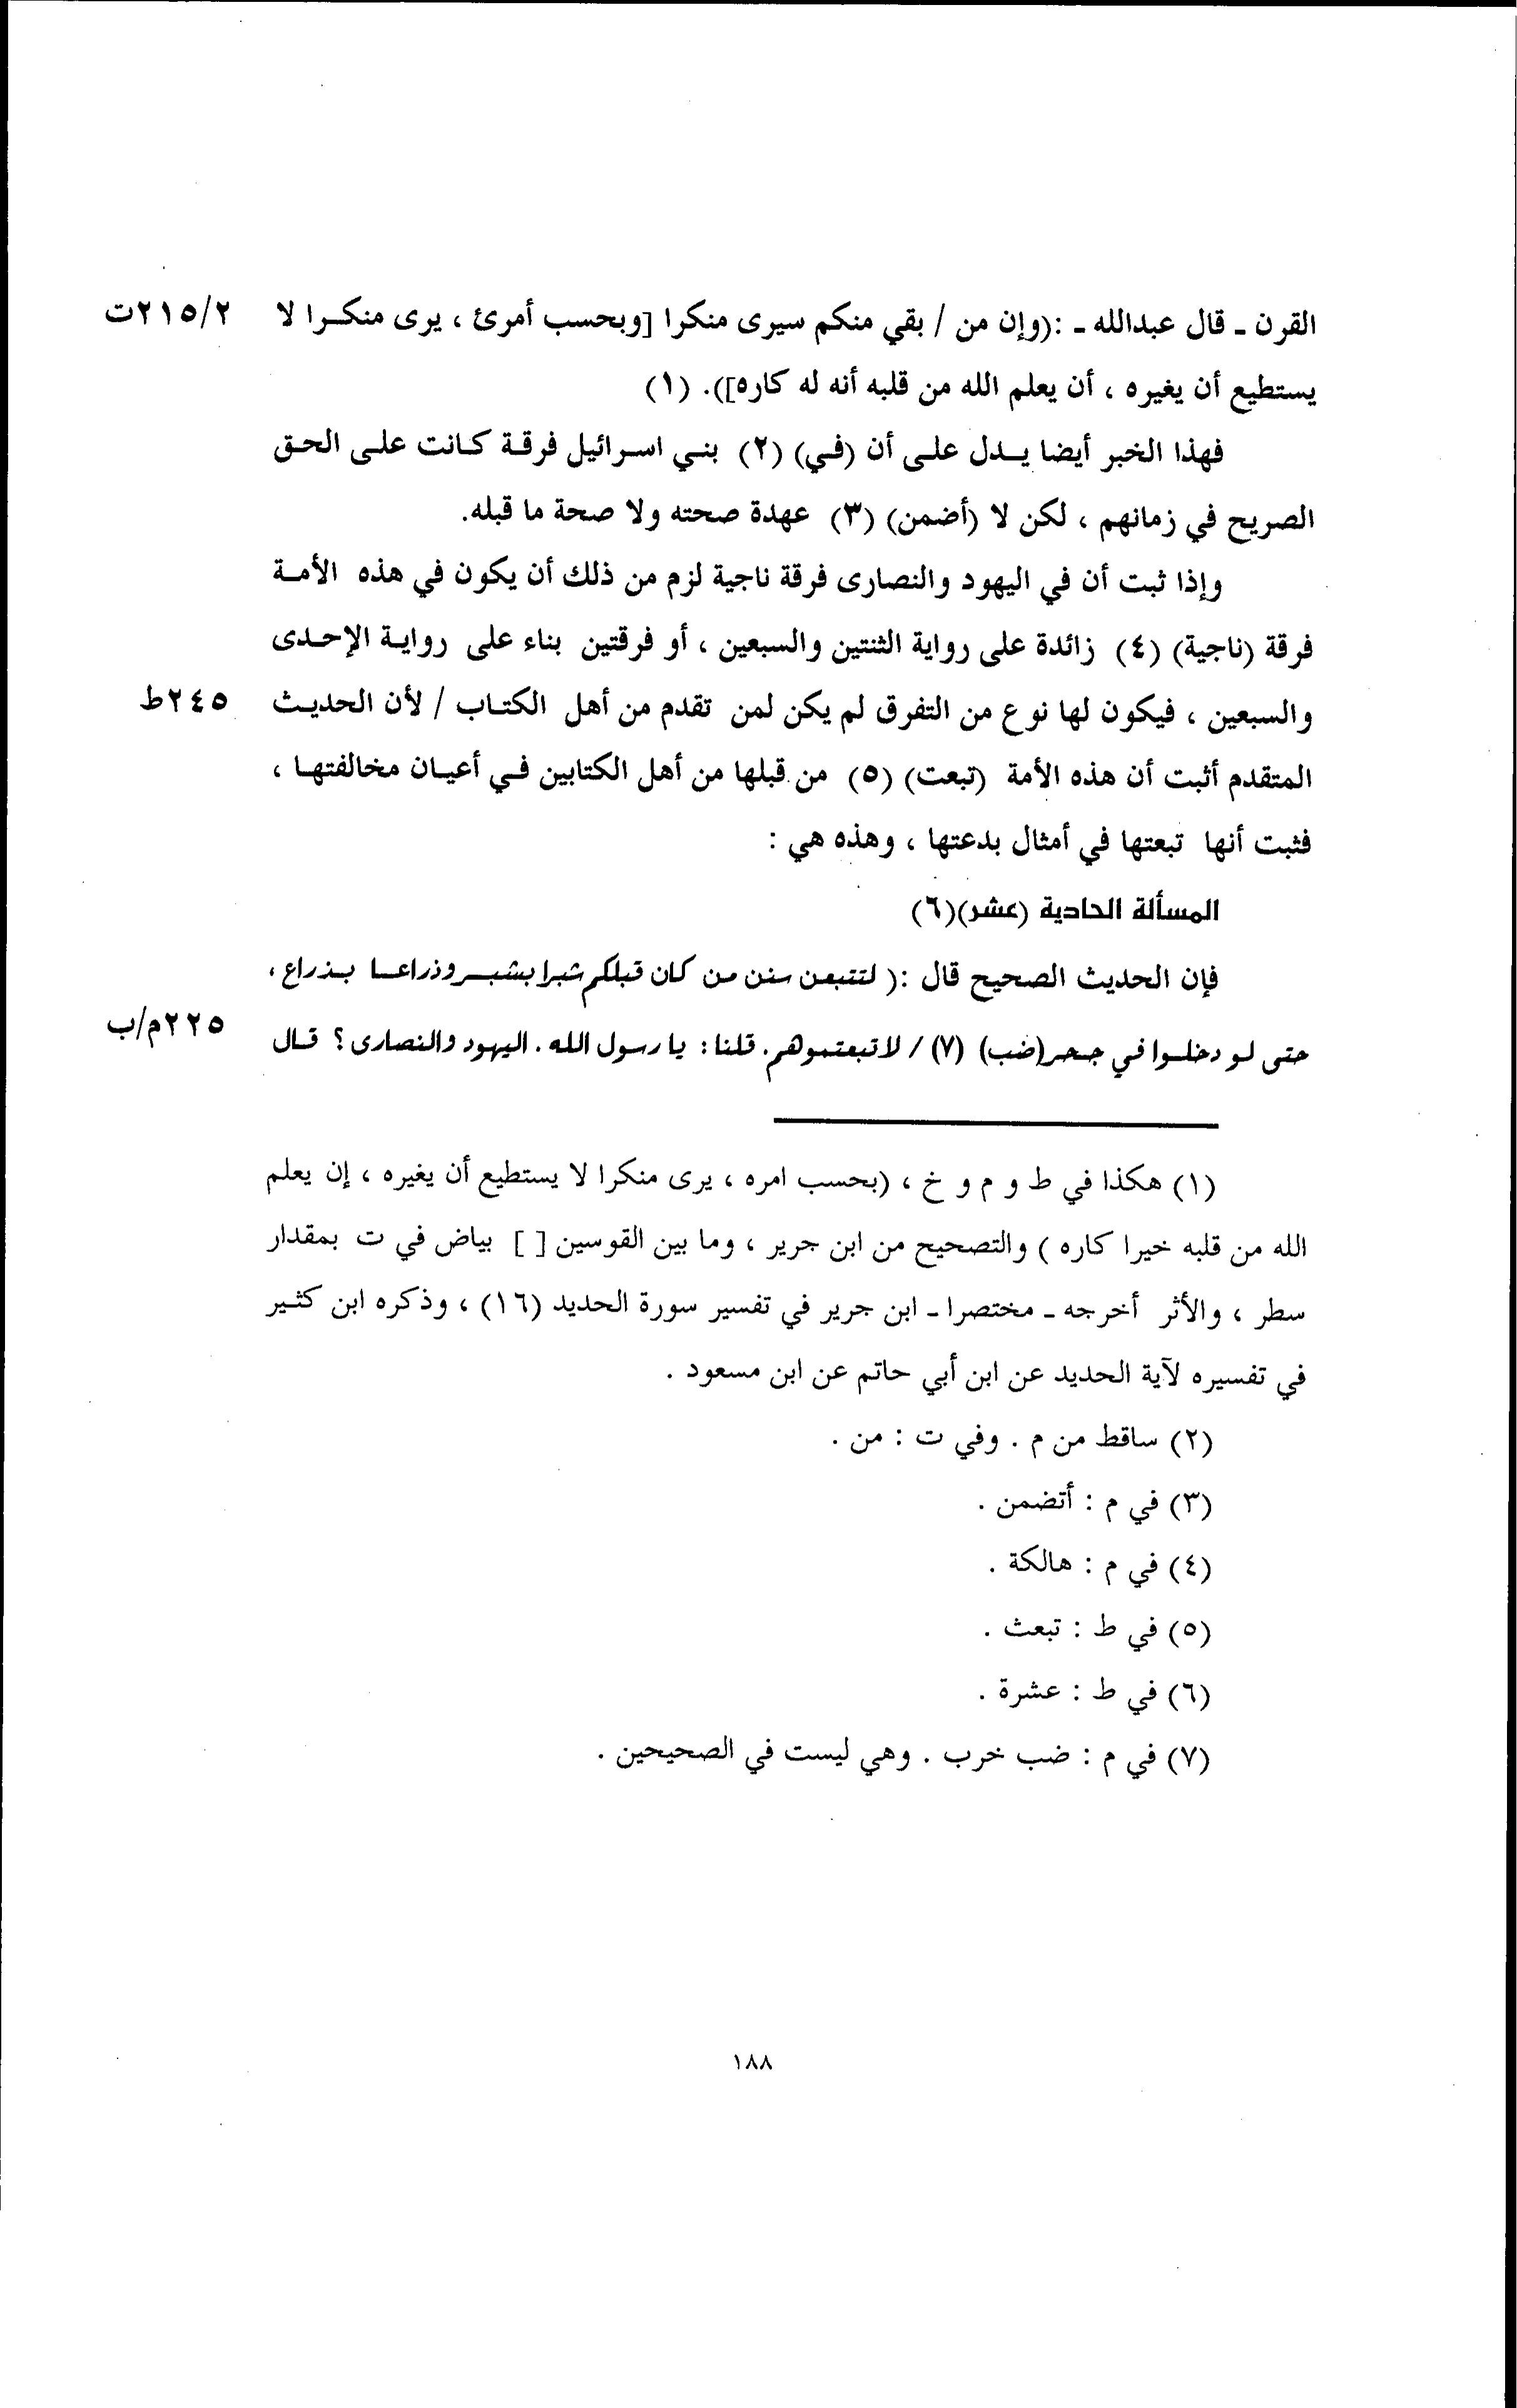 القرن ـ قال عبدالله ـ :(وإن من / بقي منكم سيرى منكرا [وبحسب أمرئ ، يرى منكـرا لا ٢/٢١٥ت
يستطيع أن يغيره ، أن يعلم الله من قلبه أنه له كاره]). (١)
فهذا الخبر أيضا يـدل على أن (في) (٢) بني اسرائيل فرقة كانت على الحق
الصريح في زمانهم ، لكن لا (أضمن) (٣) عهدة صحته ولا صحة ما قبله.
وإذا ثبت أن في اليهود والنصارى فرقة ناجية لزم من ذلك أن يكون في هذه الأمة
فرقة (ناجية) (٤) زائدة على رواية الثنتين والسبعين ، أو فرقتين بناء على رواية الإحدى
والسبعين ، فيكون لها نوع من التفرق لم يكن لمن تقدم من أهل الكتاب / لأن الحديث ٢٤٥ط
المتقدم أثبت أن هذه الأمة (تبعت) (٥) من قبلها من أهل الكتابين في أعيان مخالفتها ،
فثبت أنها تبعتها في أمثال بدعتها ، وهذه هي :
المسألة الحادية (عشر)(٦)
فإن الحديث الصحيح قال :( لتتبعن سنن من كان قبلكم شبرا بشبر وذراعا بذراع ،
حتى لو دخلوا في جحر(ضب) (٧) / لاتبعتموهم. قلنا: يا رسول الله. اليهود والنصارى؟ قال ٢٢٥م/ب
(١) هكذا في ط و م و خ ، (بحسب امره ، يرى منكرا لا يستطيع أن يغيره ، إن يعلم
الله من قلبه خيرا كاره ) والتصحيح من ابن جرير ، وما بين القوسين [ ] بياض في ت بمقدار
سطر ، والأثر أخرجه ـ مختصرا ـ ابن جرير في تفسير سورة الحديد (١٦) ، وذكره ابن كثير
في تفسيره لآية الحديد عن ابن أبي حاتم عن ابن مسعود .
(٢) ساقط من م . وفي ت : من .
(٣) في م : أتضمن .
(٤) في م : هالكة .
(٥) في ط : تبعث .
(٦) في ط : عشرة .
(٧) في م : ضب خرب . وهي ليست في الصحيحين .
١٨٨